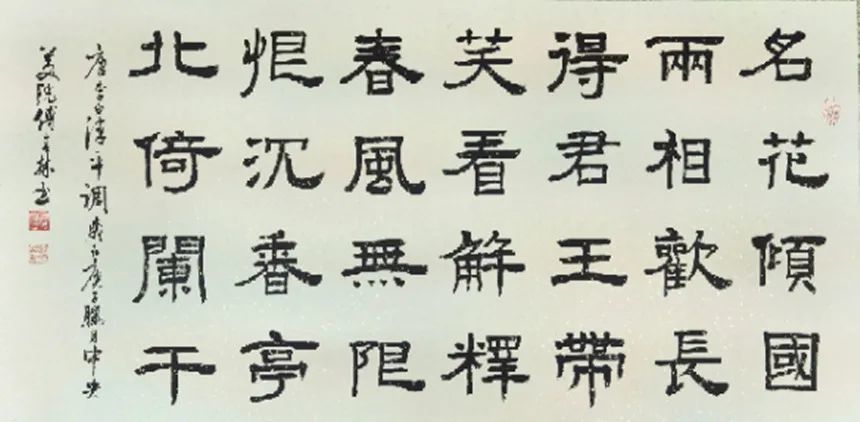 名花傾國
兩相歡長
得君王帶
笑看解釋
春風無限
恨沉香亭
北倚闌干
唐李白清平調 庚子臘月中央
美院傅林書